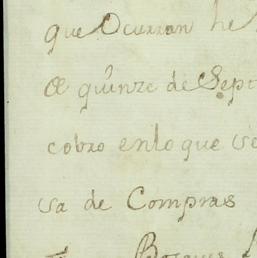 que Ocurran he
â quinze de Sept
cobro enlo que se
va de Compras
Bosques